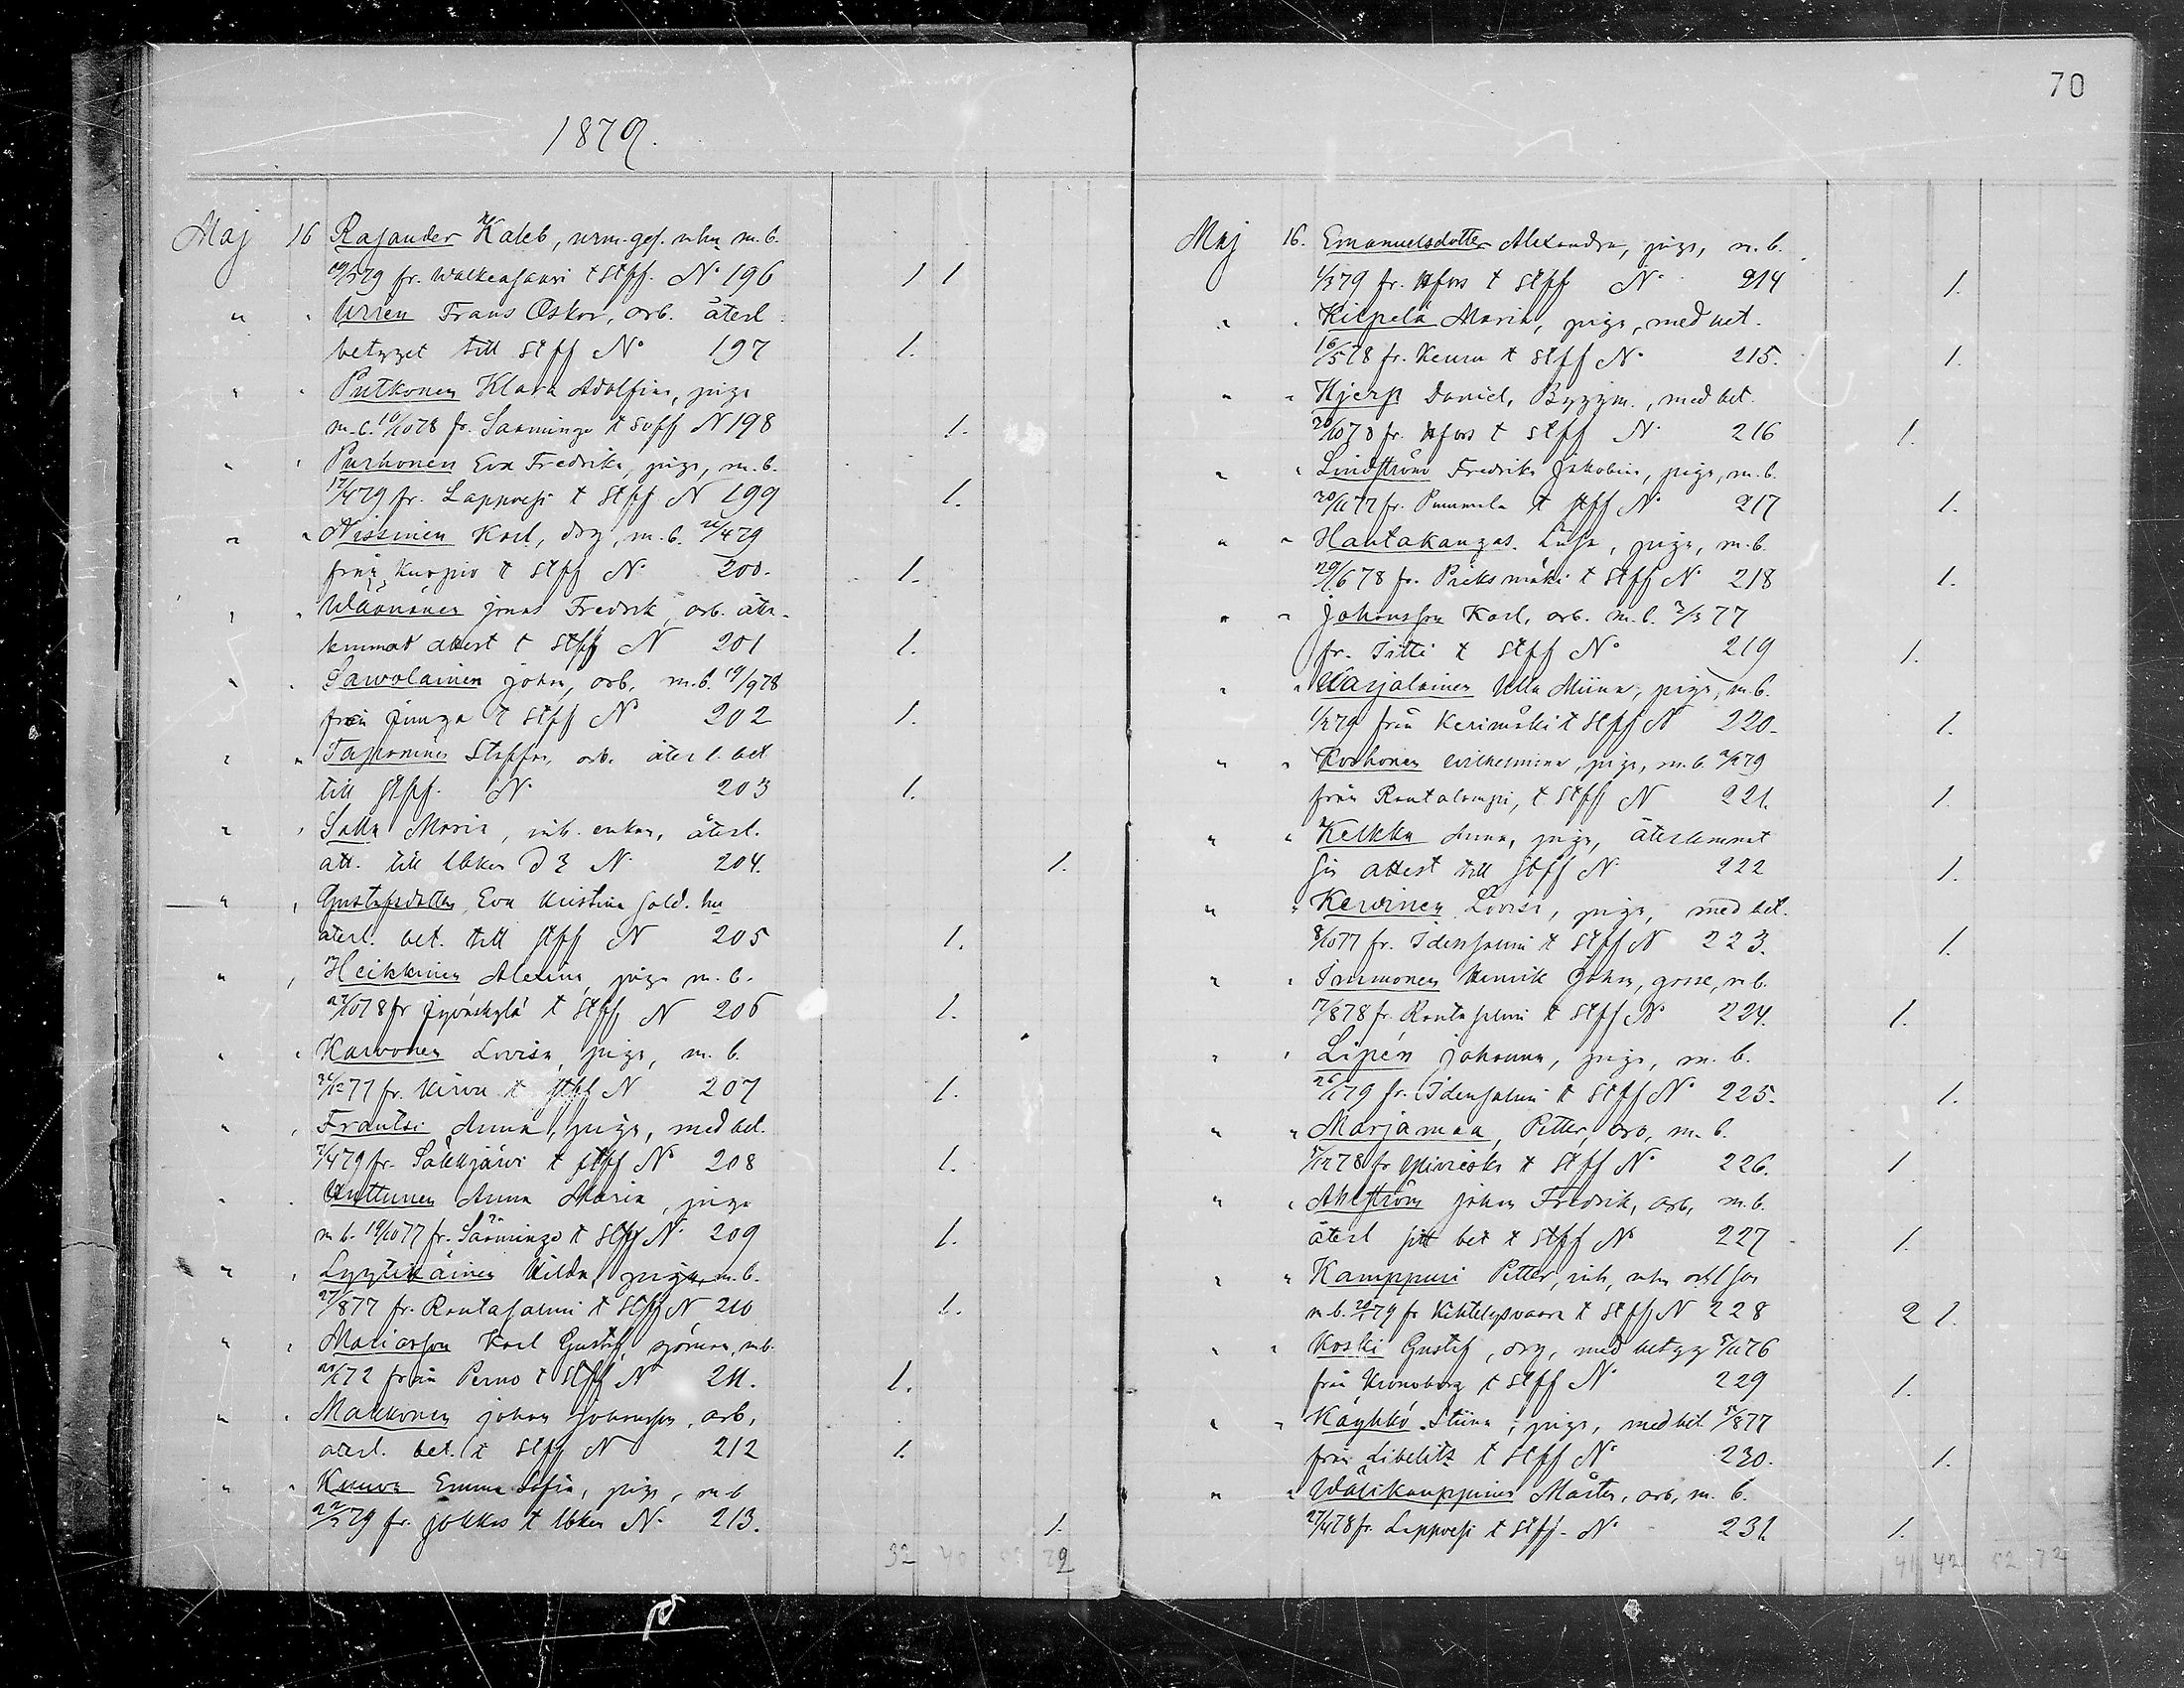 70
1879.
Maj 16 Rajander Kaleb, urm. ges. m hu m. b.
19/3 79 fr. Walkeasaari t Stpf. No 196 1 1
" " Urlén Frans Oskar, arb. återl.
betyget till Stpf No 197 1.
" " Putkonen Klara Adolfina, piga
m. b. 10/10 78 fr. Sanminge t Stpf N 198 1.
" " Purhonen Eva Fredrika, piga, m. b.
17/4 79 fr. Lappvesi t Stpf N 199 1.
" " Nissinen Karl, drg, m. b. 22/4 79
från Kuopio t Stpf No 200. 1.
" " Wäänänen Jonas Fredrik, arb. åter-
lemnat attest t Stpf N 201 1.
" " Sawolainen Johan, arb. m. b. 19/9 78
från Junga t Stpf No 202 1.
" " Taponinen Staffan, arb. återl. bet
till Stpf. No 203 1.
" " Salla Maria, inh. enkan, återl.
att. till Wben D 3 No 204. 1.
" " Gustafsdotter, Eva Kristina sold. hu
återl. bet. till Stpf N 205 1.
" " Heikkinen Alexina, piga m. b.
27/10 78 fr Jyväskylä t Stpf N 206 1.
" " Karvonen Lovisa, piga, m. b.
31/12 77 fr. Kirvu t Stpf N 207 1.
" " Frantsi Anna, piga, med bet.
7/4 79 fr. Säkkjärvi t Stpf No 208 1.
" " Huttunen Anna Maria, piga
m b. 19/10 77 fr. Sääminge t Stpf No 209 1.
" " Lyytikäinen Hilda, piga, m. b.
27/8 77 fr. Rantasalmi t Stpf N 210 1.
" " Matiasson Karl Gustaf, sjöman, m. b.
21/1 72 från Perno t Stpf N 211. 1.
" " Makkonen Johan Johansson, arb,
återl. bet. t Stpf N 212 1.
" " Kuuva Emma Sofia, piga, m. b
22/3 79 fr. Jokkas t Wben No 213. 1.
32 40 29
Maj 16. Emanuelsdotter Alexandra, piga, m. b.
1/3 79 fr. Hfors t Stpf No 214 1.
" " Kilpelä Maria, piga, med bet.
16/5 78 fr. Keuru t Stpf No 215. 1.
" " Hjerp Daniel, Byggm., med bet.
20/10 78 fr. Hfors t Stpf N 216 1.
" " Lindström Fredrika Jakobina, piga, m. b.
20/11 77 fr. Pummala t Stpf No 217 1.
" " Hautakangas Liisa, piga, m. b.
29/6 78 fr. Pieksmäki t Stpf No 218 1.
" " Johansson Karl, arb. m. b. 3/3 77
fr. Iitti t Stpf No 219 1.
" " Karjalainen Ulla Miina, piga, m. b.
1/2 79 från Kerimäki t Stpf N 220. 1.
" " Korhonen Wilhelmina, piga, m. b. 2/2 79
från Rautalampi, t Stpf N 221. 1.
" " Kelkka Anna, piga, återlemnat
sin attest till Stpf N 222 1.
" " Kervinen Lovisa, piga, med bet.
8/10 77 fr. Idensalmi t Stpf N 223. 1.
" " Immonen Henrik Johan, gosse, m b.
17/8 78 fr. Rantasalmi t Stpf No 224. 1.
" " Lipén Johanna, piga, m. b.
26/1 79 fr. Idensalmi t Stpf No 225. 1.
" " Marjamaa, Petter, arb, m. b.
5/12 78 fr Ylivieska t Stpf No 226. 1
" " Ahlström Johan Fredrik, arb, m. b.
återl sitt bet t Stpf No 227 1.
" " Kamppuri Petter, inh, m hu och 1 son
m. b. 20/1 79 fr Kihtelysvaara t Stpf N 228 2 1.
" " Koski Gustaf, drg, med betyg 5/11 76
från Kronoborg t Stpf No 229 1.
" " Käyhkö Stiina, piga, med bet 15/8 77
från Libelitz t Stpf No 230. 1.
" " Wälikauppinen Mårten, arb, m. b.
27/4 78 fr. Lappvesi t Stpf. No 231. 1.
41 42 52 72